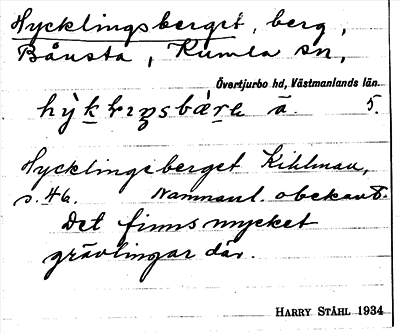 Hycklingsberget, berg,
Bånsta, Kumla sn,
Övertjurbo hd, Västmanlands län.
5.
Hycklingsberget Killman,
s. 46. Namnanl. obekant.
Det finns mycket
grävlingar där.
HARRY STÅHL 1934